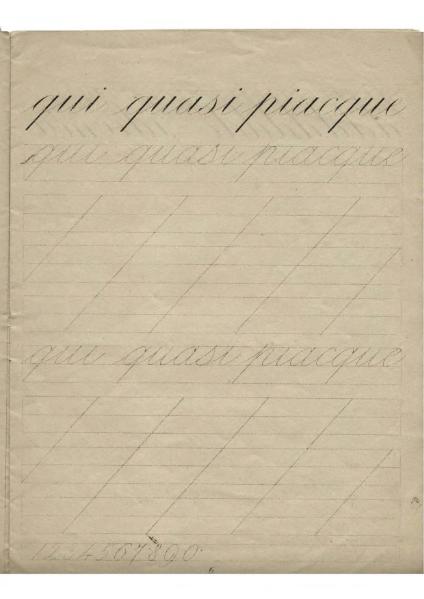 qui quasi piacque
qui quasi piacque
qui quasi piacque
1234567890